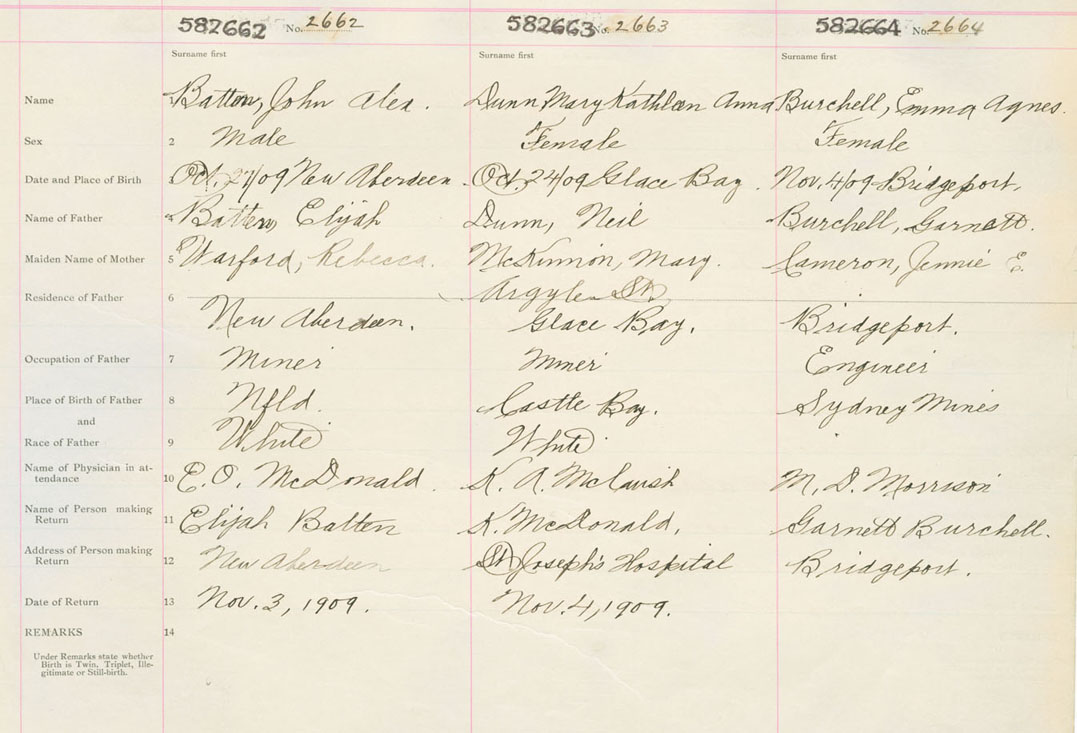 582662 No. 2662 582663 No. 2663 582664 No. 2664
Surname first Surname first Surname first
Name 1 Batten, John Alex. Dunn Mary Kathleen Anna Burchell, Emma Agnes.
Sex 2 Male Female Female
Date and Place of Birth Oct. 27/09 New Aberdeen Oct 24/09 Glace Bay. Nov. 4/09 Bridgeport.
Name of Father Batten, Elijah Dunn, Neil Burchell, Garnett.
Maiden Name of Mother 5 Warford, Rebecca. McKinnon, Mary. Cameron, Jennie E.
Argyle St
Residence of Father 6 New Aberdeen. Glace Bay. Bridgeport.
Occupation of Father 7 Miner Miner Engineer
Place of Birth of Father 8 Nfld. Castle Bay. Sydney Mines
and
Race of Father 9 White White
Name of Physician in at-
tendance 10 E.O. McDonald. K. A. McCuish M. D. Morrison
Name of Person making
Return 11 Elijah Batten K. McDonald, Garnett Burchell.
Address of Person making
Return 12 New Aberdeen St Joseph's Hospital Bridgeport.
Date of Return 13 Nov. 3, 1909. Nov. 4, 1909.
REMARKS 14
Under Remarks state whether
Birth is Twin, Triplet, Ille-
gitimate or Still-birth.